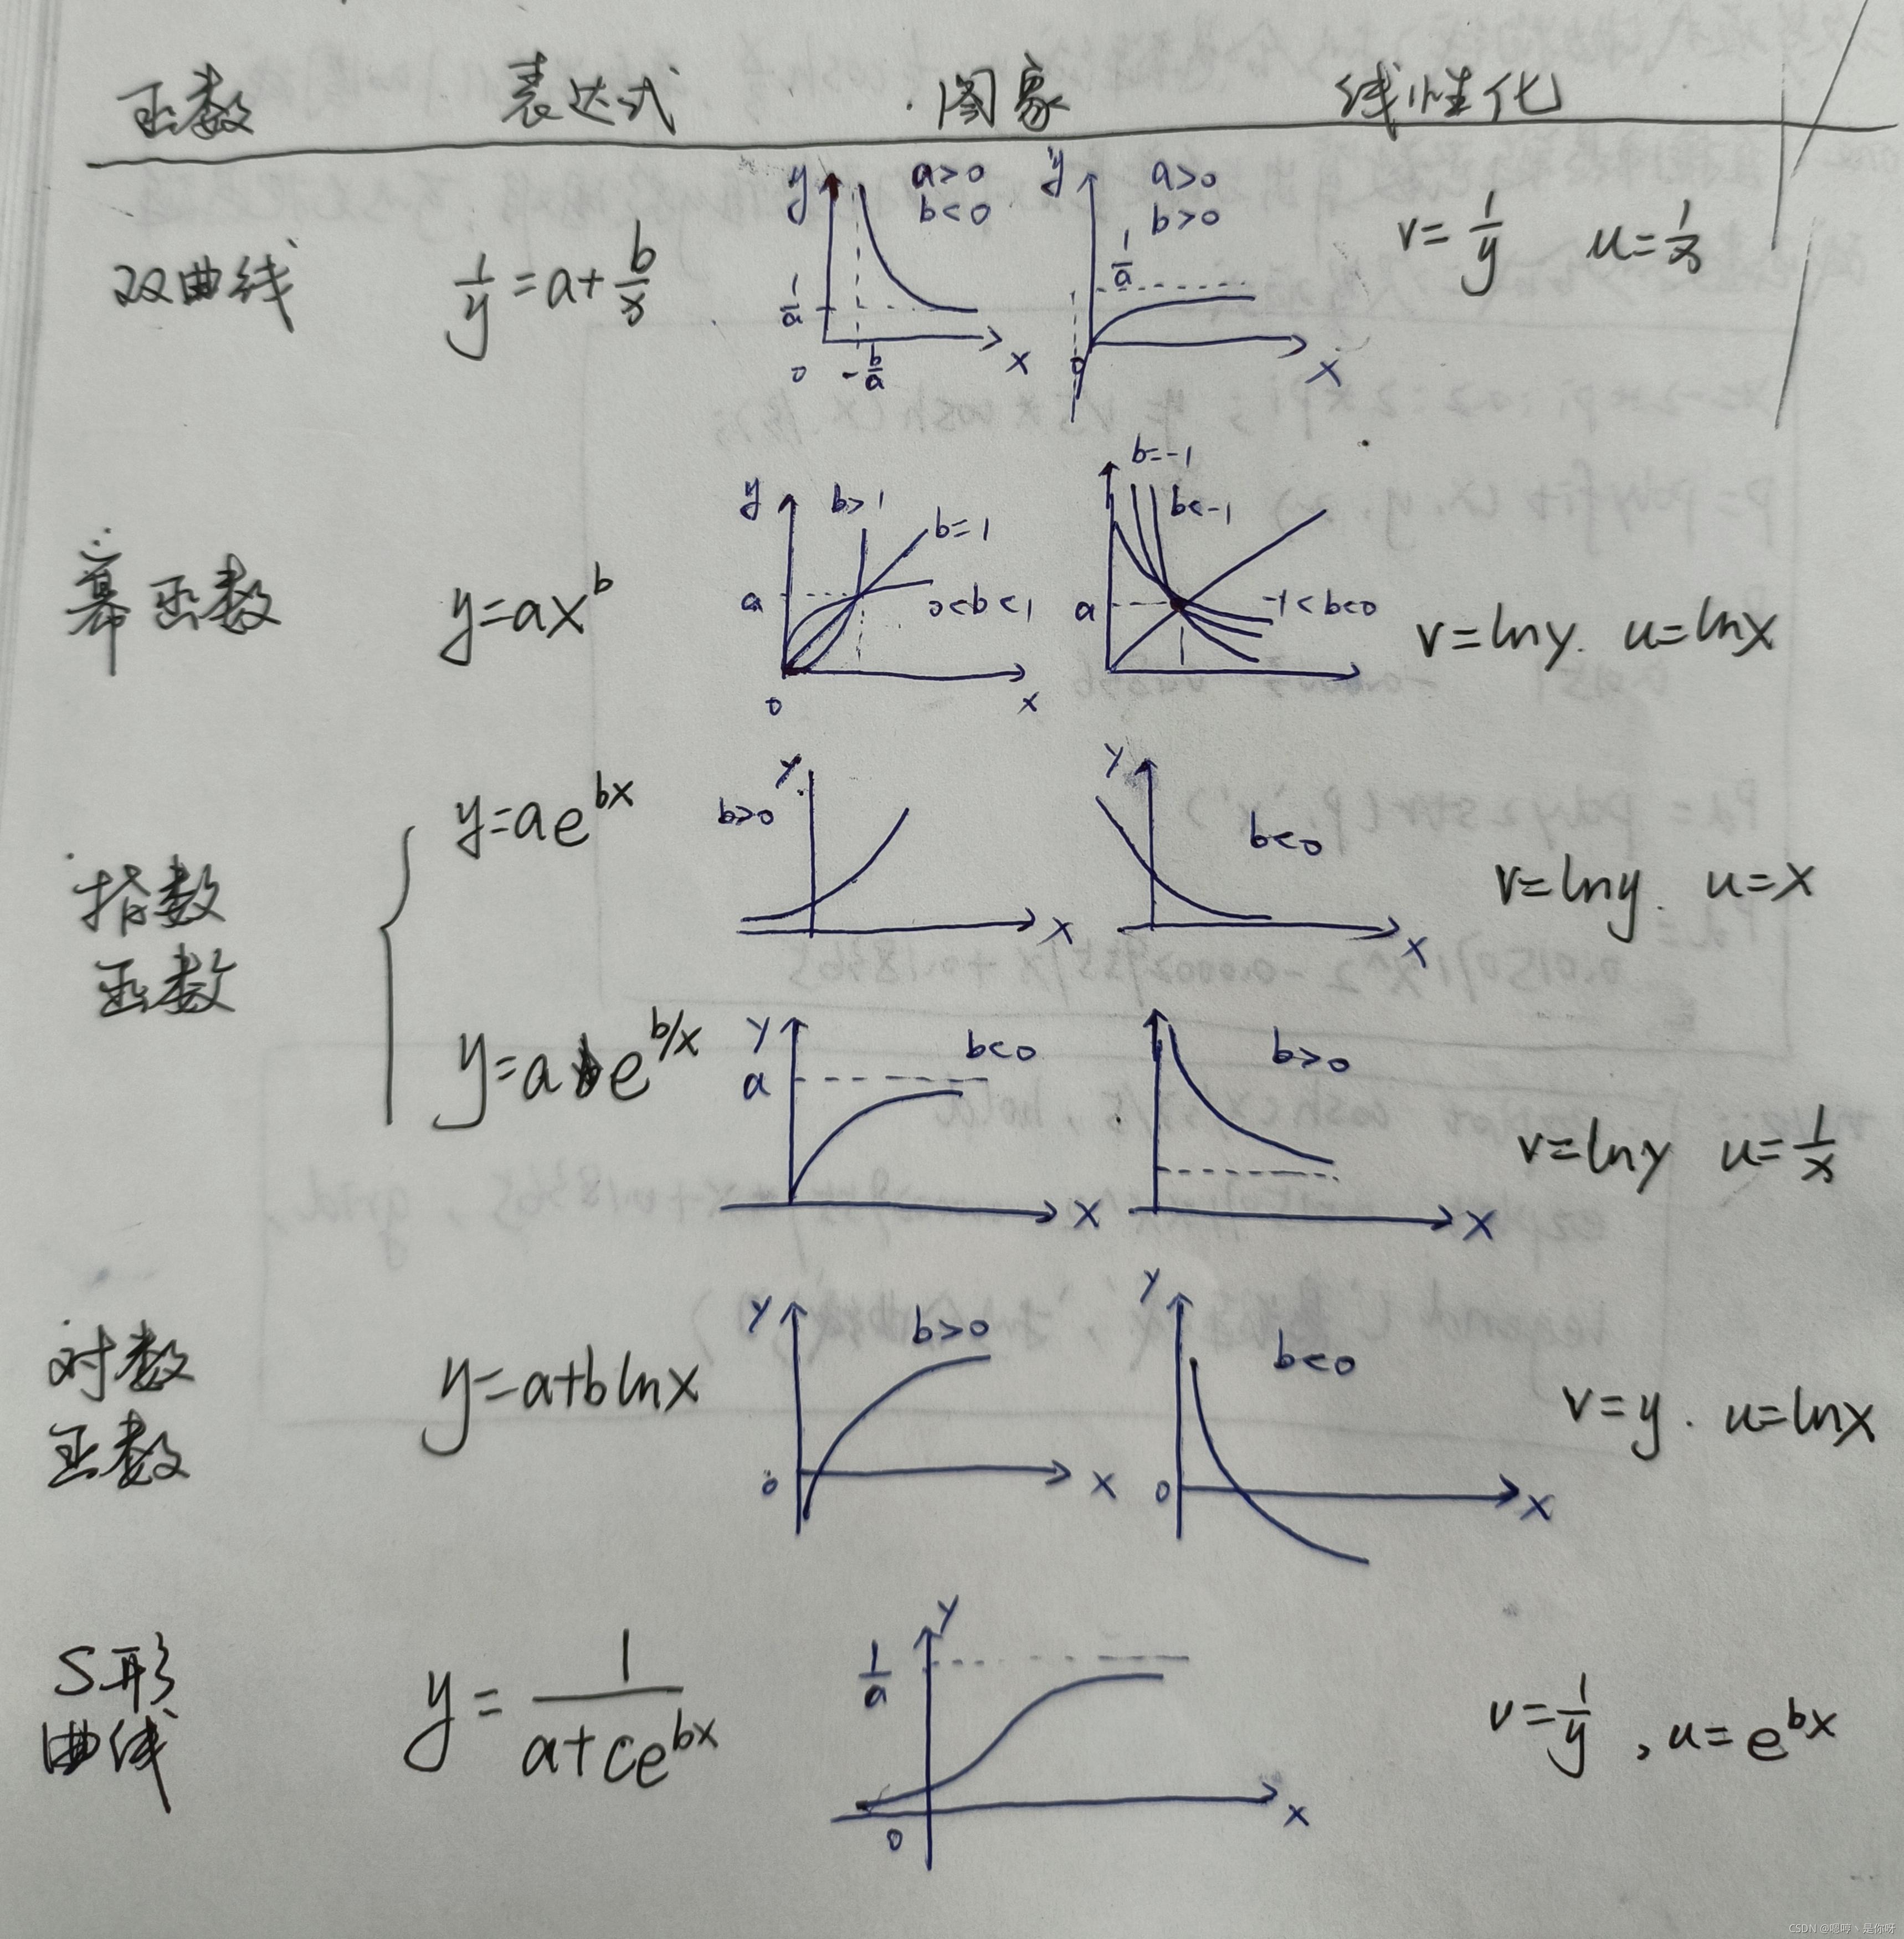 函数 表达式 图象 线性化
双曲线 1/y = a + b/x y a>0 b<0 1/a 0 -b/a x y a>0 b>0 1/a 0 x v=1/y u=1/x
幂函数 y=ax^b y b>1 b=1 0<b<1 a 0 x b=-1 b<-1 -1<b<0 a v=lny. u=lnx
指数函数 y=ae^bx b>0 y x y b<0 x v=lny. u=x
y=ae^b/x y a b<0 x b>0 x v=lny u=1/x
对数函数 y=a+blnx y b>0 0 x y b<0 0 x v=y. u=lnx
S形曲线 y=1/(a+ce^bx) 1/a y 0 x v=1/y, u=e^bx
CSDN @嗯哼丶是你呀